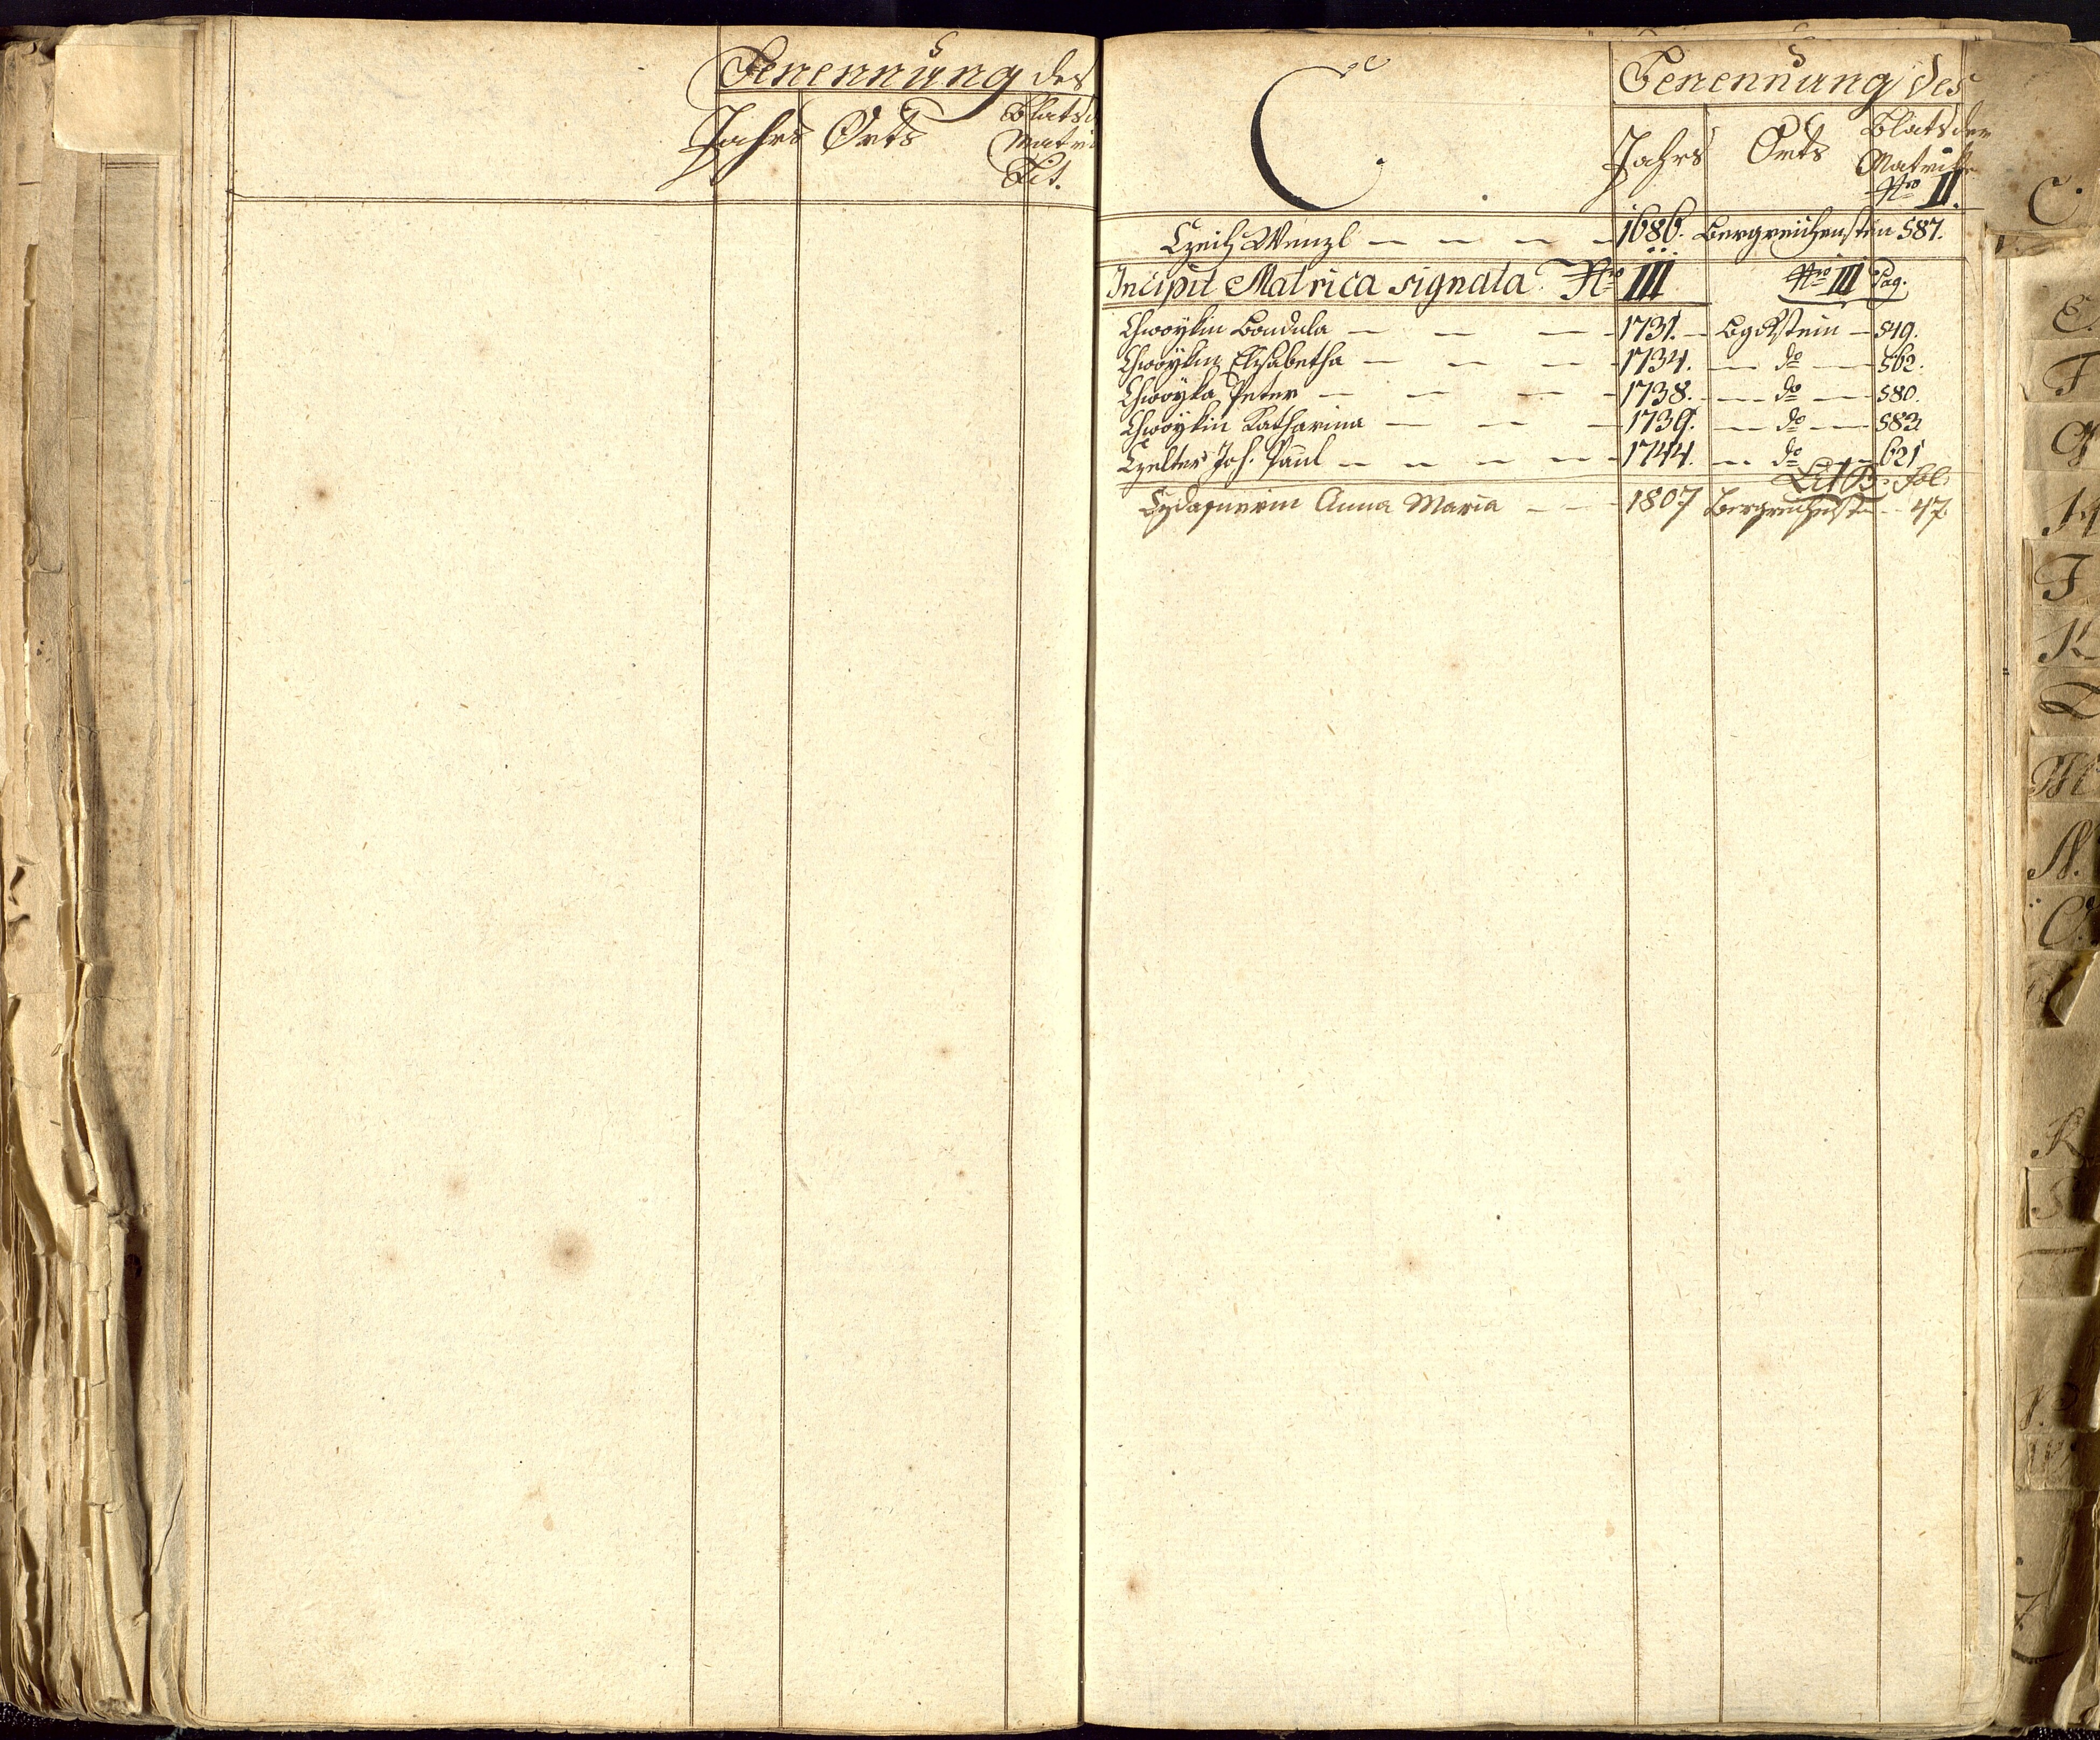 Benennung des
Jahrs Orts Blats d
Matri
Lit.
C.
Benennung des
Jahrs Orts Blats der
Matrike
Nro II.
Czech Wenzl — — — — 1686. Bergreichenstein 587.
Incipit Matrica signata Nro III Nro III Pag.
Chwoÿkin — — — 1731. — Bgrstein — 549.
Chwoÿkin Elisabetha — — — 1734. — do — 562.
Chwoÿka Peter — — — — 1738. — do — 580.
Chwoÿkin Katharina — — — 1739. — do — 583
Czelter Joh. Paul — — — — 1744. — do — 621
Lit B. Fol.
Anna Maria — — 1807 Bergreichenstein — 47.
C
E
F
G
H
I
K
L
M
N.
O.
R
S